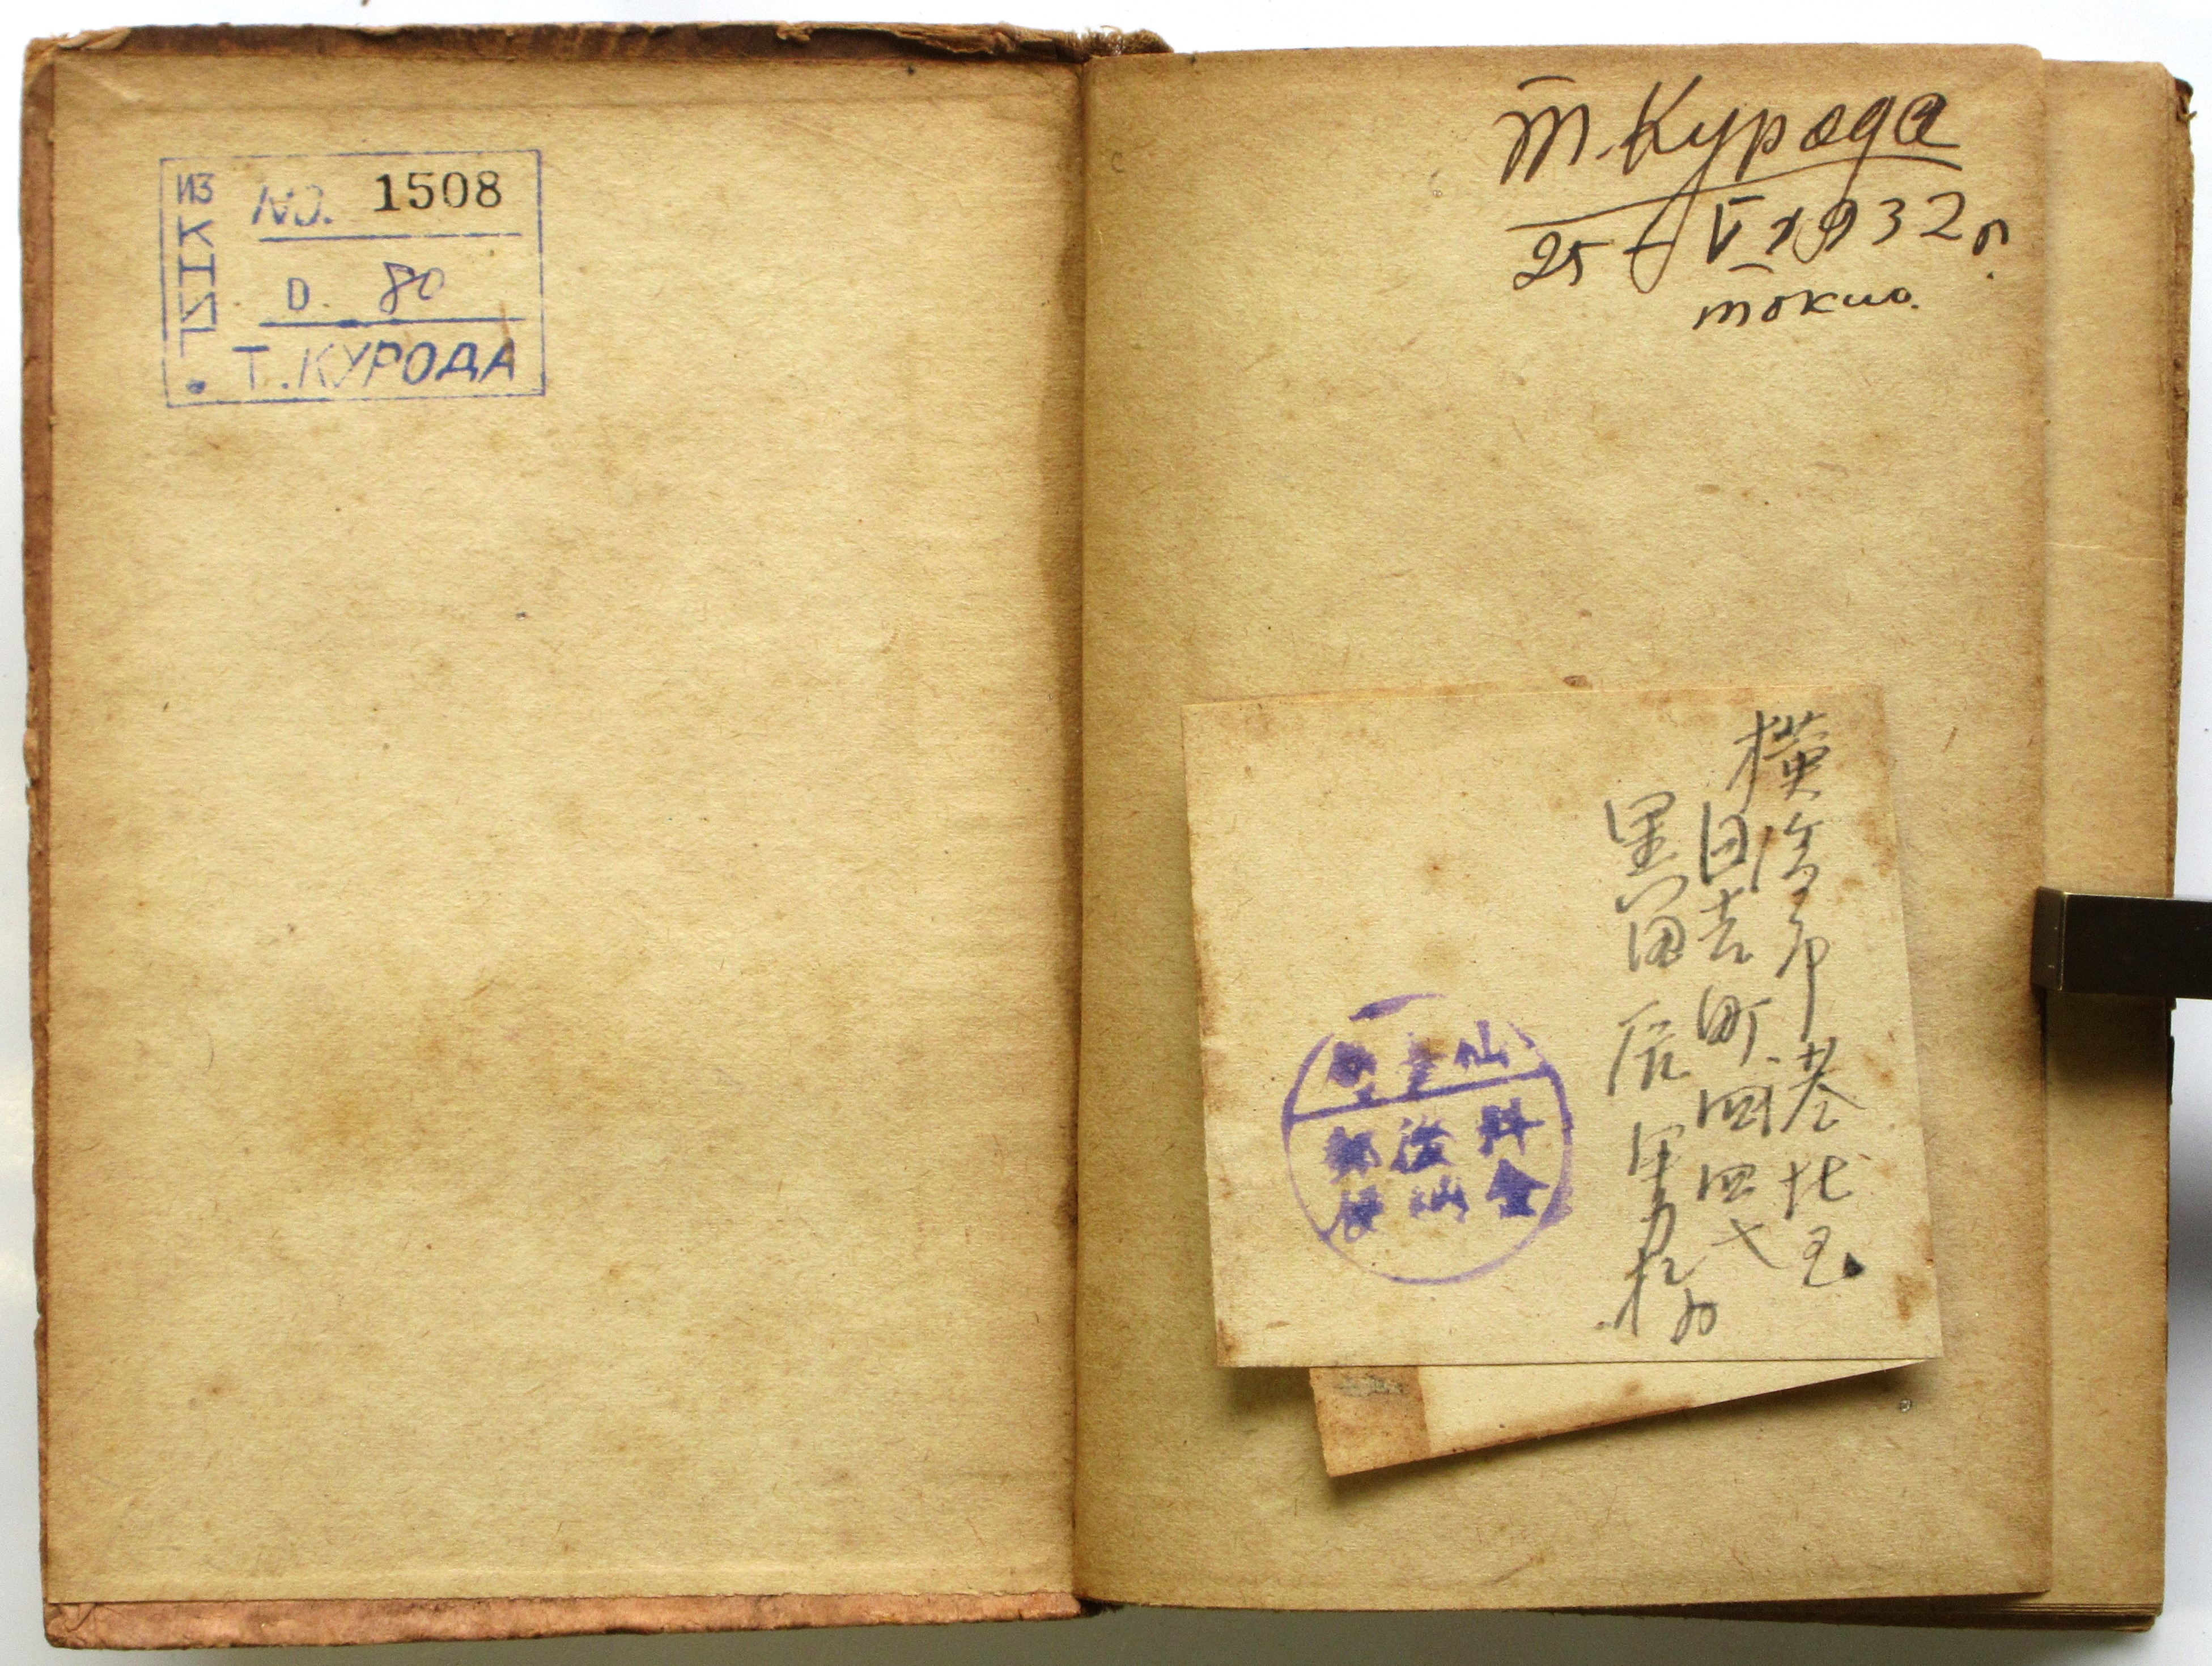 ИЗ КНИГ.
NO. 1508
D. 80
Т. КУРОДА
Т. Курода
25 - V 1932 г.
Токио.
横濱市港北区
日吉町四四七
黒田辰男様方
仙臺
料金
後納
郵便